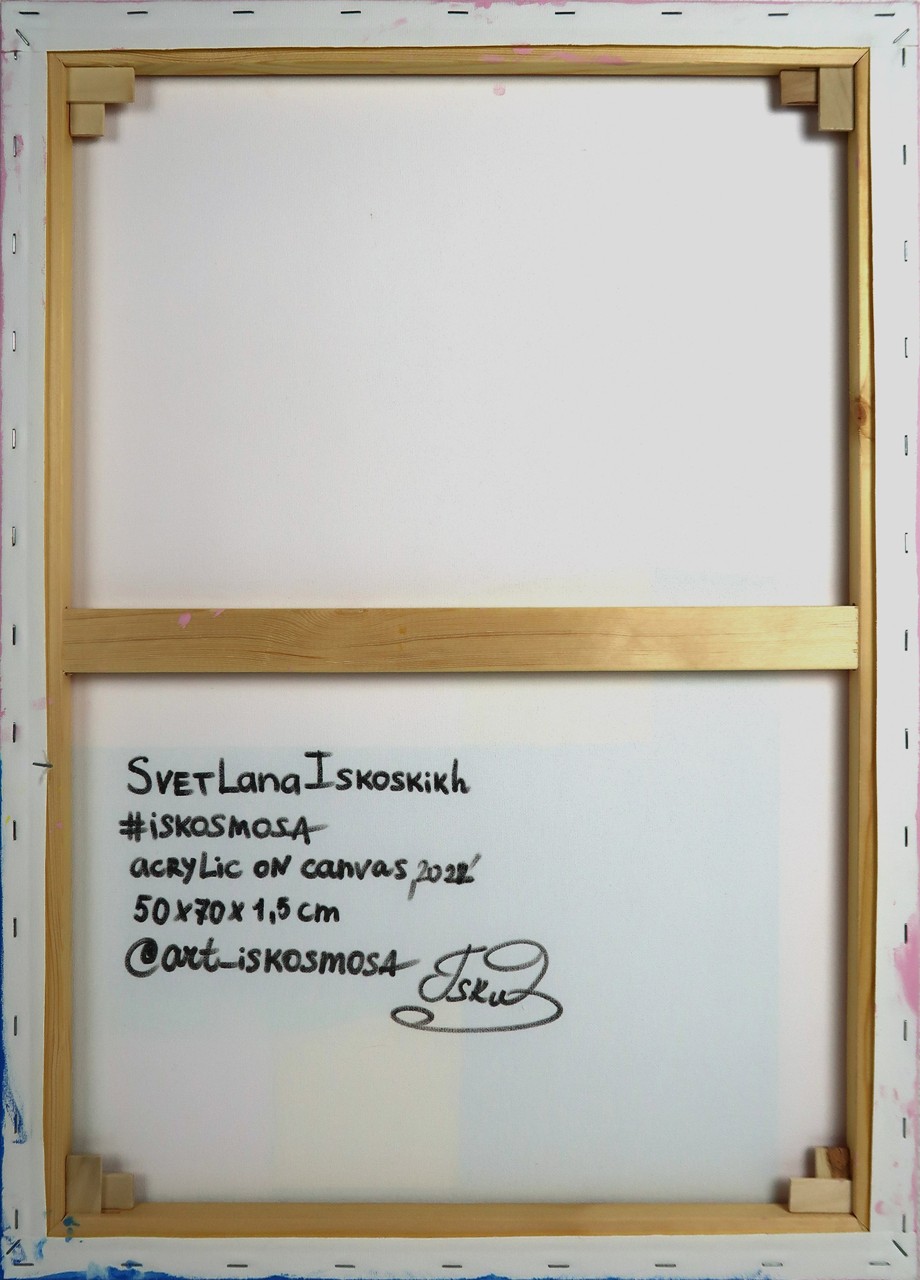 Svetlana Iskoskikh
#iskosmosa
acrylic on canvas, 2022
50x70x1,5 cm
@art_iskosmosa